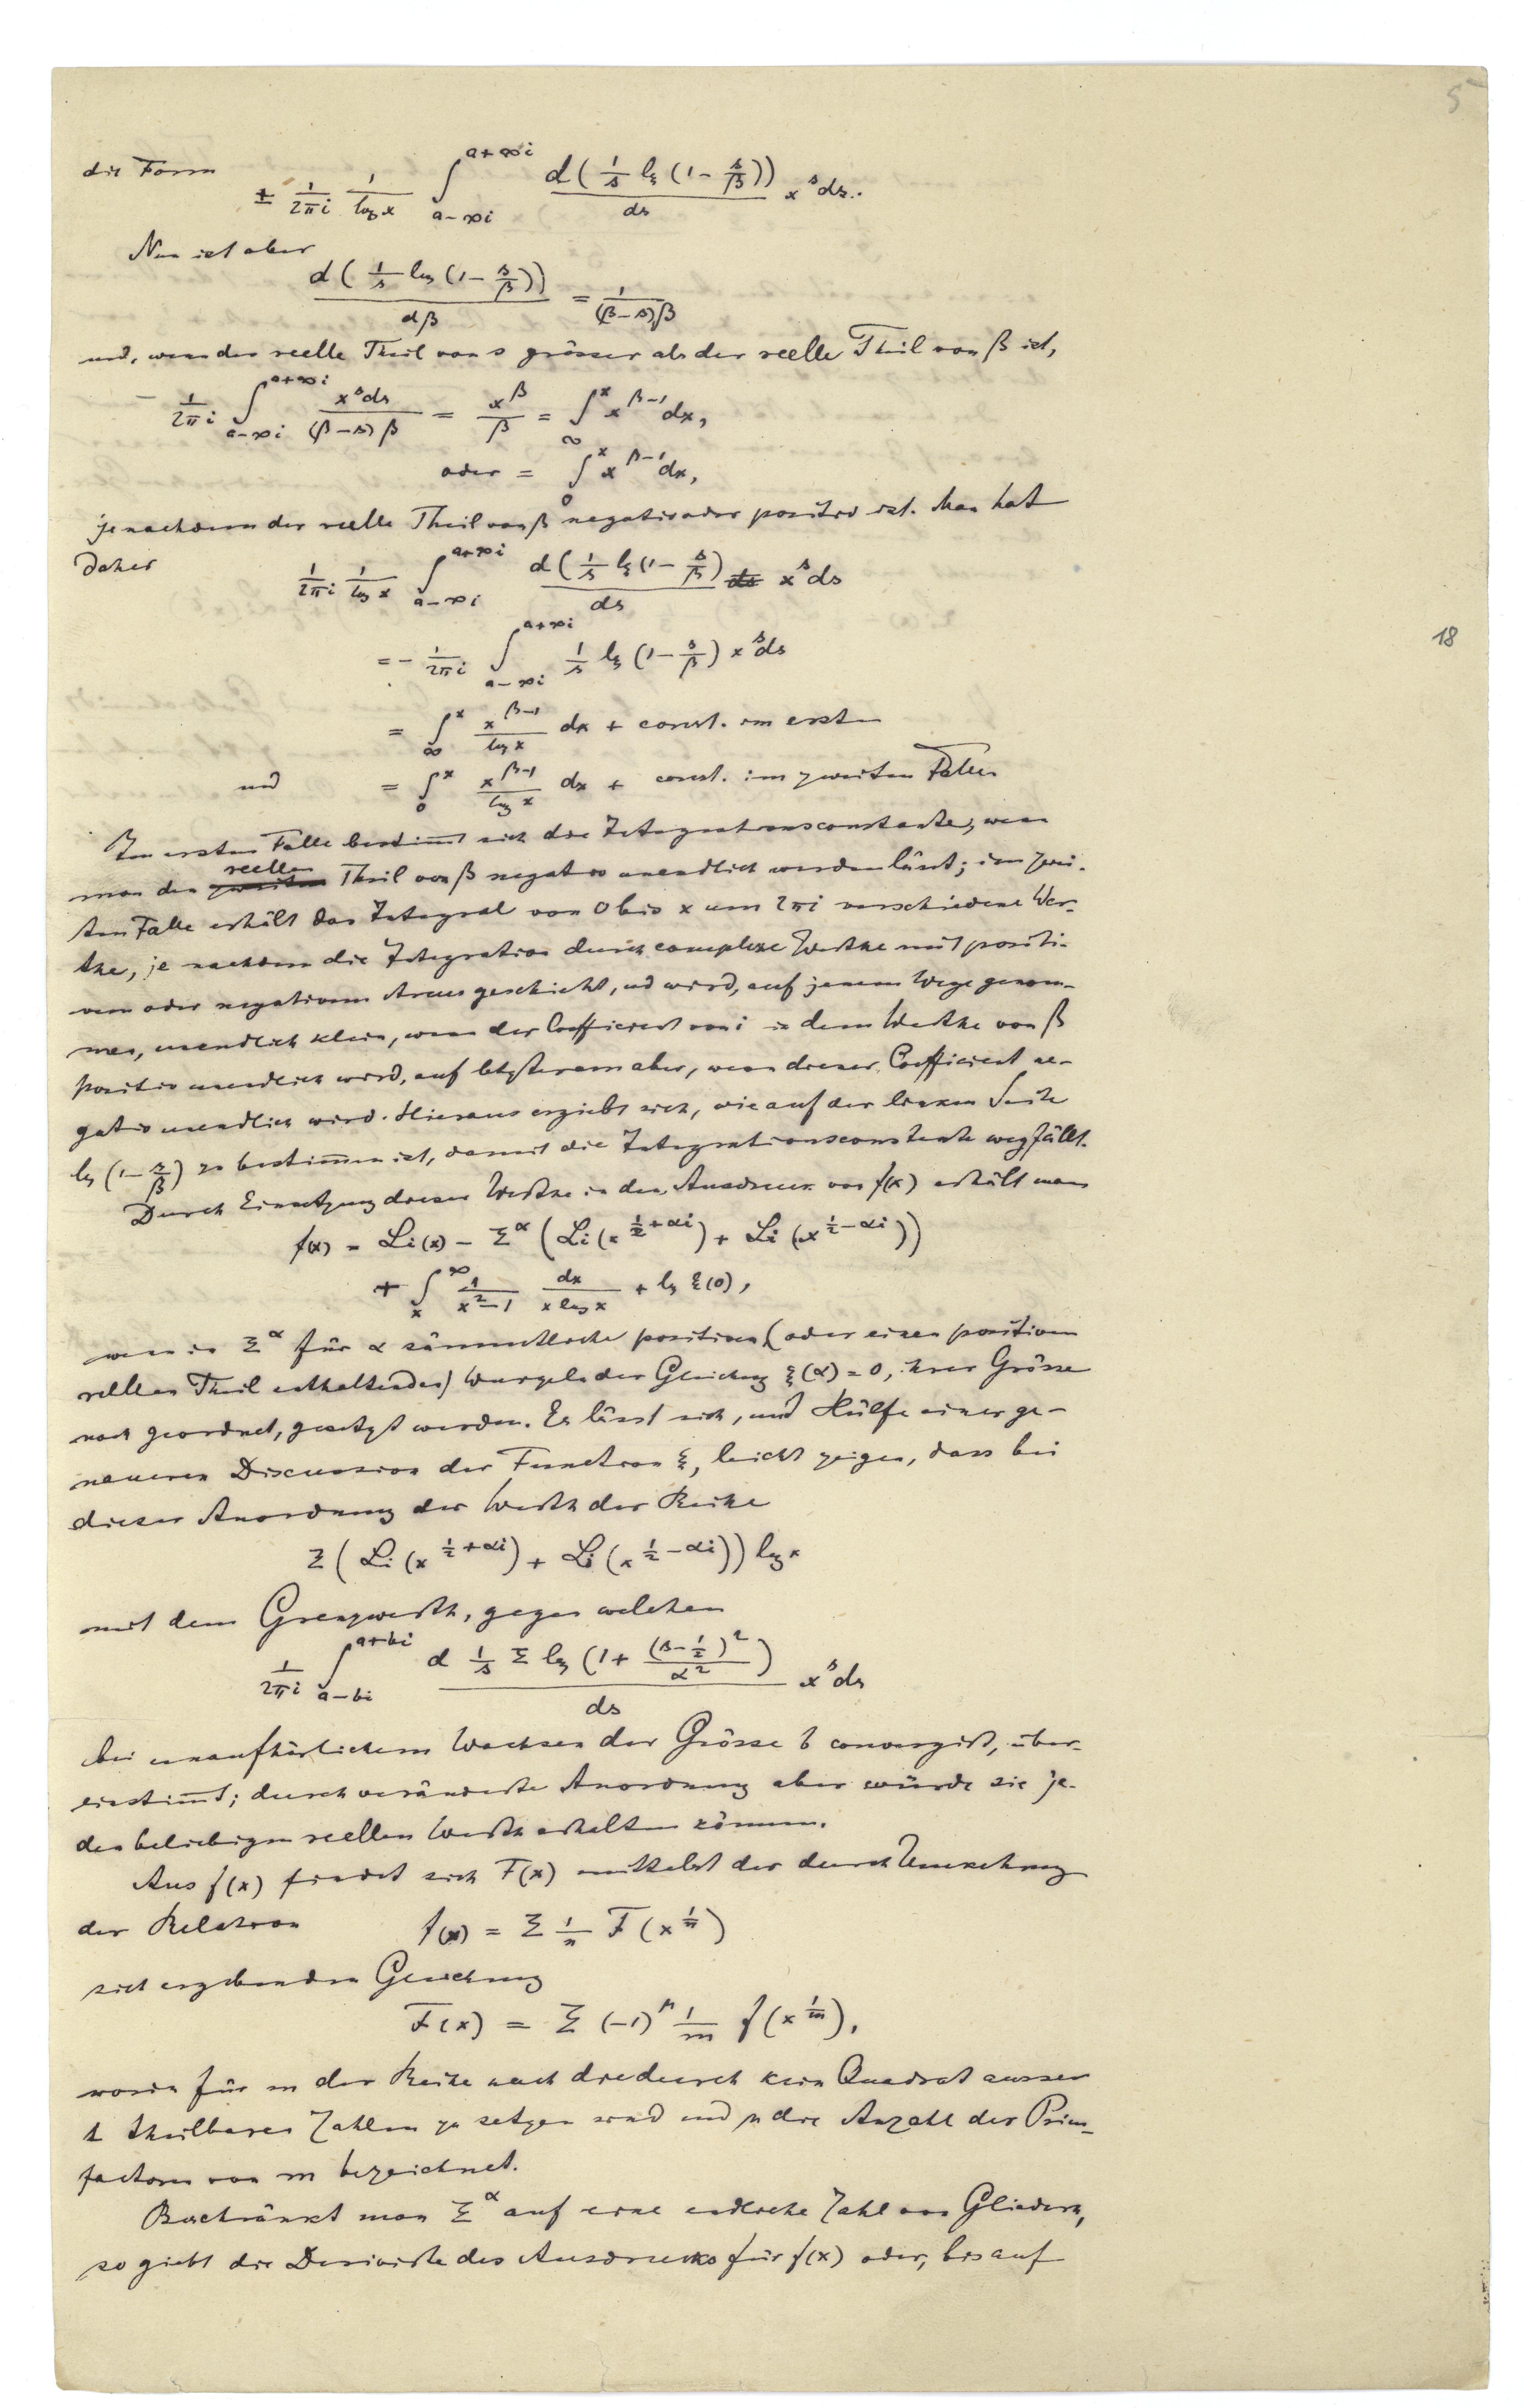 5
die Form
± 1/(2πi) 1/(log x) ∫_{a-∞i}^{a+∞i} d(1/s lg (1 - s/β))/ds x^s ds.
Nun ist aber
d(1/s log (1 - s/β))/dβ = 1/((β-s)β)
und, wenn der reelle Theil von s grösser als der reelle Theil von β ist,
- 1/(2πi) ∫_{a-∞i}^{a+∞i} x^s ds/((β-s)β) = x^β/β = ∫_∞^x x^{β-1} dx,
oder = ∫_0^x x^{β-1} dx,
jenachdem der reelle Theil von β negativ oder positiv ist. Man hat
daher
1/(2πi) 1/(log x) ∫_{a-∞i}^{a+∞i} d(1/s lg (1 - s/β)/ds x^s ds
= - 1/(2πi) ∫_{a-∞i}^{a+∞i} 1/s lg (1 - s/β) x^s ds
= ∫_∞^x x^{β-1}/(log x) dx + const. im ersten
und = ∫_0^x x^{β-1}/(log x) dx + const. im zweiten Falle.
Im ersten Falle bestimmt sich die Integrationsconstante, wenn
man den reellen Theil von β negativ unendlich werden lässt; im zwei-
ten Falle erhält das Integral von 0 bis x um 2πi verschiedene Wer-
the, je nachdem die Integration durch complexe Werthe mit positi-
vem oder negativem Arcus geschieht, und wird, auf jenem Wege genom-
men, unendlich klein, wenn der Coefficient von i in dem Werthe von β
positiv unendlich wird, auf letzterem aber, wenn dieser Coefficient ne-
gativ unendlich wird. Hieraus ergiebt sich, wie auf der linken Seite
lg (1 - s/β) zu bestimmen ist, damit die Integrationsconstante wegfällt.
Durch Einsetzung dieser Werthe in den Ausdruck von f(x) erhält man
f(x) = Li(x) - Σ^α (Li(x^{1/2+αi}) + Li(x^{1/2-αi}))
+ ∫_x^∞ 1/(x²-1) dx/(x log x) + lg ξ(0),
wenn in Σ^α für α sämmtliche positiven (oder einen positiven
reellen Theil enthaltenden) Wurzeln der Gleichung ξ(α) = 0, ihrer Grösse
nach geordnet, gesetzt werden. Es lässt sich, mit Hülfe einer ge-
naueren Discussion der Function ξ, leicht zeigen, dass bei
dieser Anordnung der Werth der Reihe
Σ(Li(x^{1/2+αi}) + Li(x^{1/2-αi})) log x
mit dem Grenzwerth, gegen welchen
1/(2πi) ∫_{a-bi}^{a+bi} d 1/s Σ log (1 + (s-1/2)²/α²)/ds x^s ds
bei unaufhörlichem Wachsen der Grösse b convergirt, über-
einstimmt; durch veränderte Anordnung aber würde sie je-
den beliebigen reellen Werth erhalten können.
Aus f(x) findet sich F(x) mittelst der durch Umkehrung
der Relation f(x) = Σ 1/n F(x^{1/n})
sich ergebenden Gleichung
F(x) = Σ (-1)^μ 1/m f(x^{1/m}),
worin für m der Reihe nach die durch kein Quadrat ausser
1 theilbaren Zahlen zu setzen sind und μ die Anzahl der Prim-
factoren von m bezeichnet.
Beschränkt man Σ^α auf eine endliche Zahl von Gliedern,
so giebt die Derivirte des Ausdrucks für f(x) oder, bis auf
18